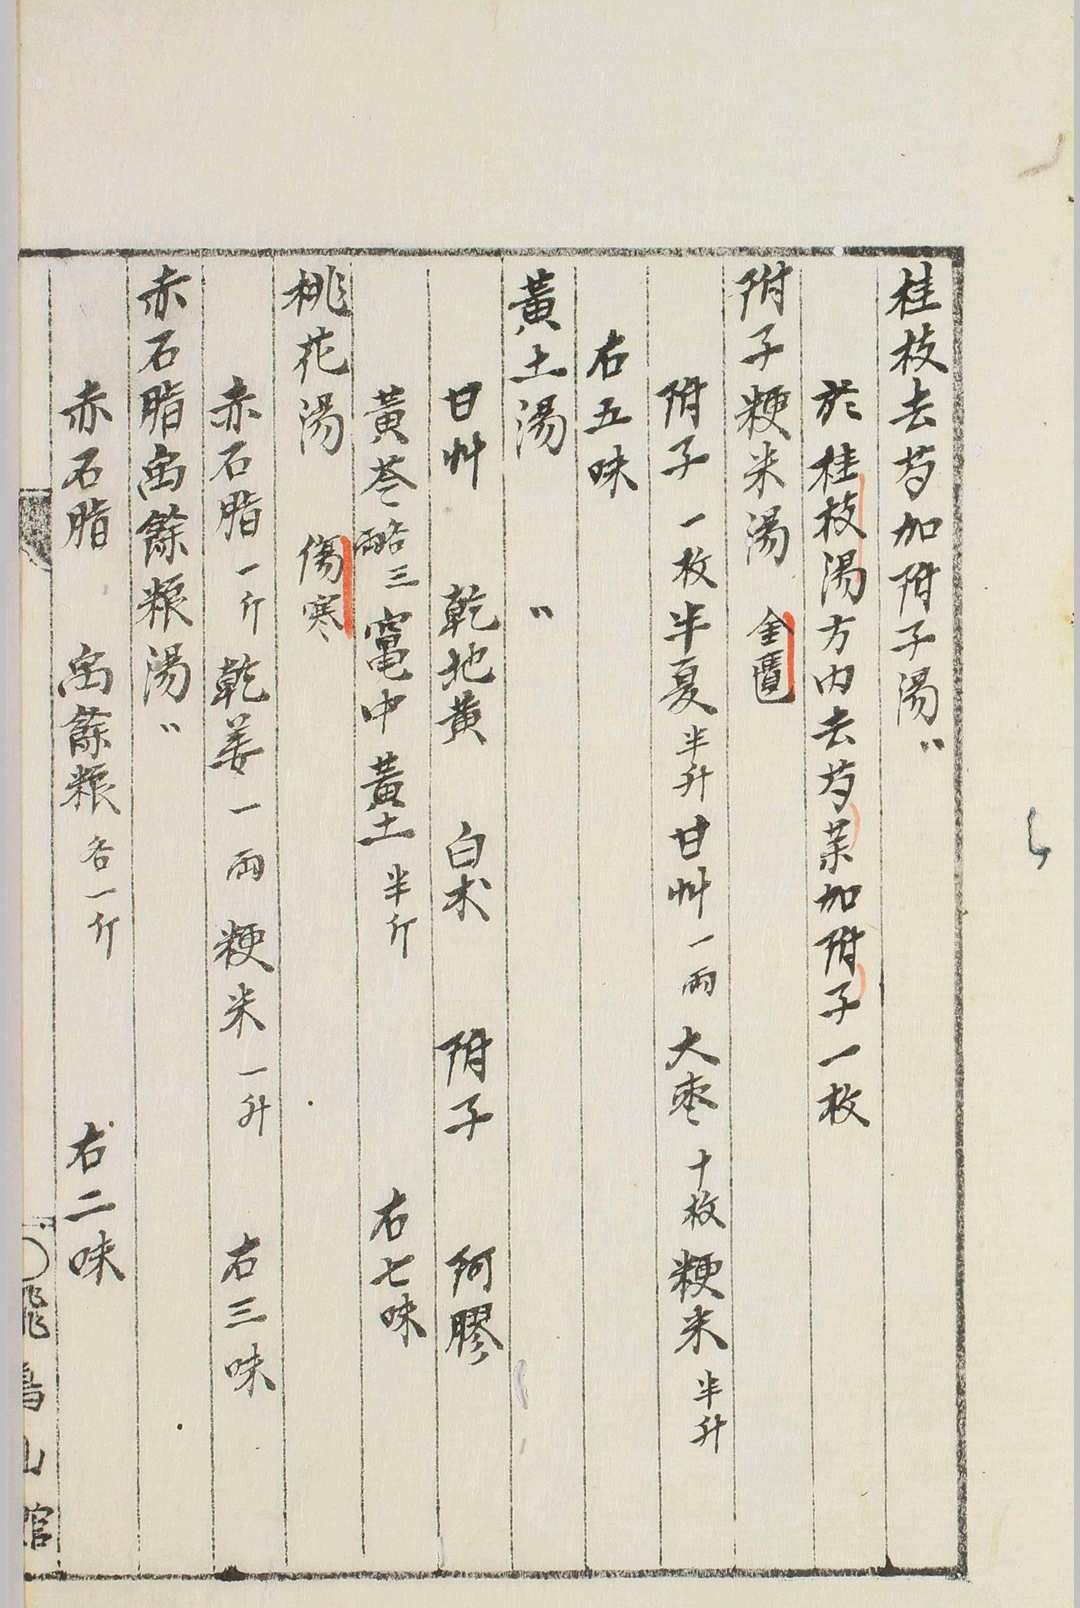 桂枝去芍加附子湯〃
於桂枝湯方内去芍薬加附子一枚
附子粳米湯 金匱
附子一枚半夏半升甘艸一両大枣十枚粳米半升
右五味
黃土湯 〃
甘艸 乾地黃 白朮 附子 阿膠
黃芩各三両竃中黃土半斤 右七味
桃花湯 傷寒
赤石脂一斤乾姜一両粳米一升 右三味
赤石脂禹餘粮湯〃
赤石脂 禹餘粮各一斤 右二味
飛鳥山館